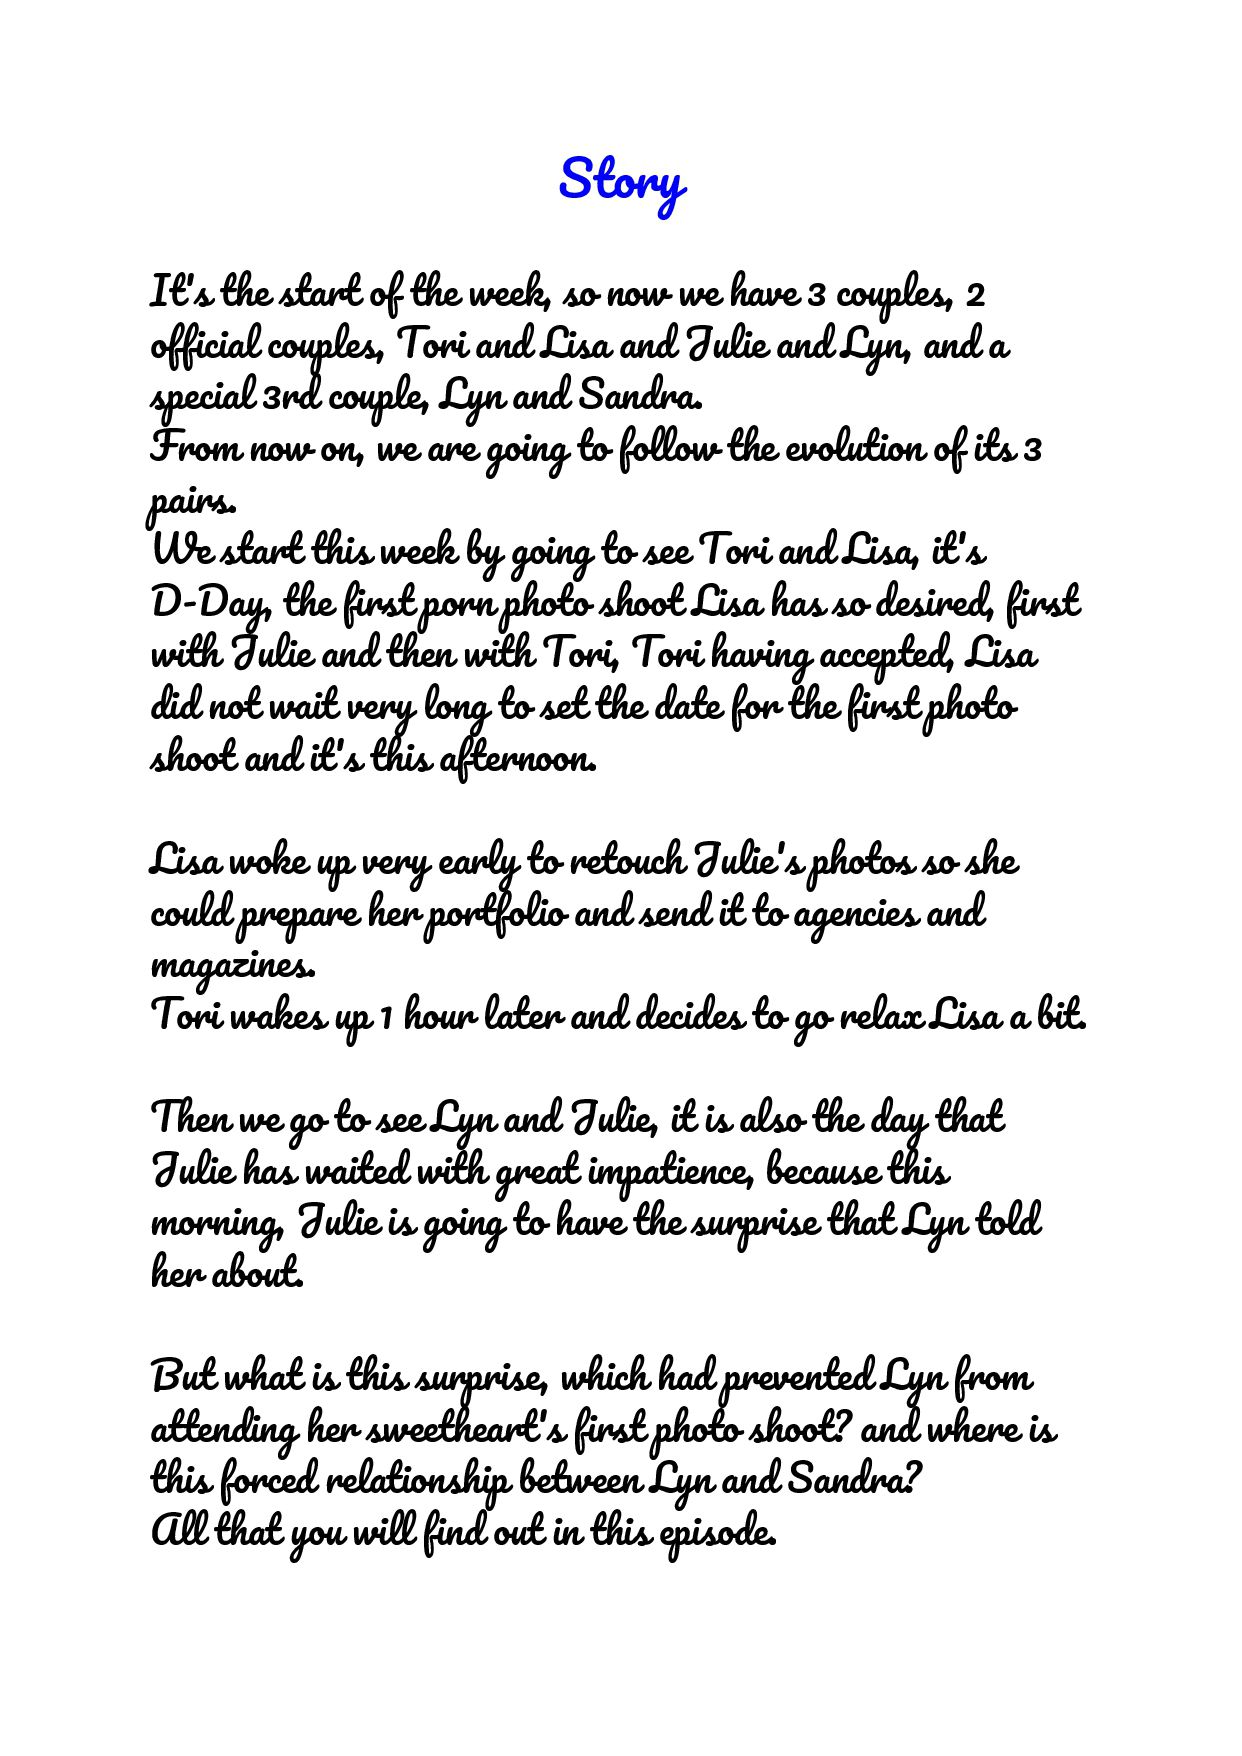 Story
It's the start of the week, so now we have 3 couples, 2
official couples, Tori and Lisa and Julie and Lyn, and a
special 3rd couple, Lyn and Sandra.
From now on, we are going to follow the evolution of its 3
pairs.
We start this week by going to see Tori and Lisa, it's
D-Day, the first porn photo shoot Lisa has so desired, first
with Julie and then with Tori, Tori having accepted, Lisa
did not wait very long to set the date for the first photo
shoot and it's this afternoon.
Lisa woke up very early to retouch Julie's photos so she
could prepare her portfolio and send it to agencies and
magazines.
Tori wakes up 1 hour later and decides to go relax Lisa a bit.
Then we go to see Lyn and Julie, it is also the day that
Julie has waited with great impatience, because this
morning, Julie is going to have the surprise that Lyn told
her about.
But what is this surprise, which had prevented Lyn from
attending her sweetheart's first photo shoot? and where is
this forced relationship between Lyn and Sandra?
All that you will find out in this episode.